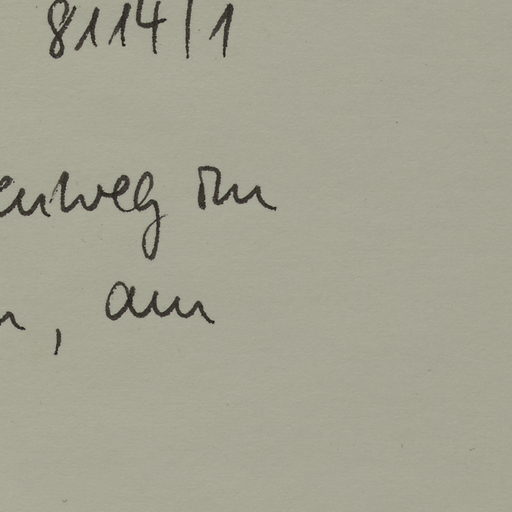 8114/1
enweg im
n, am